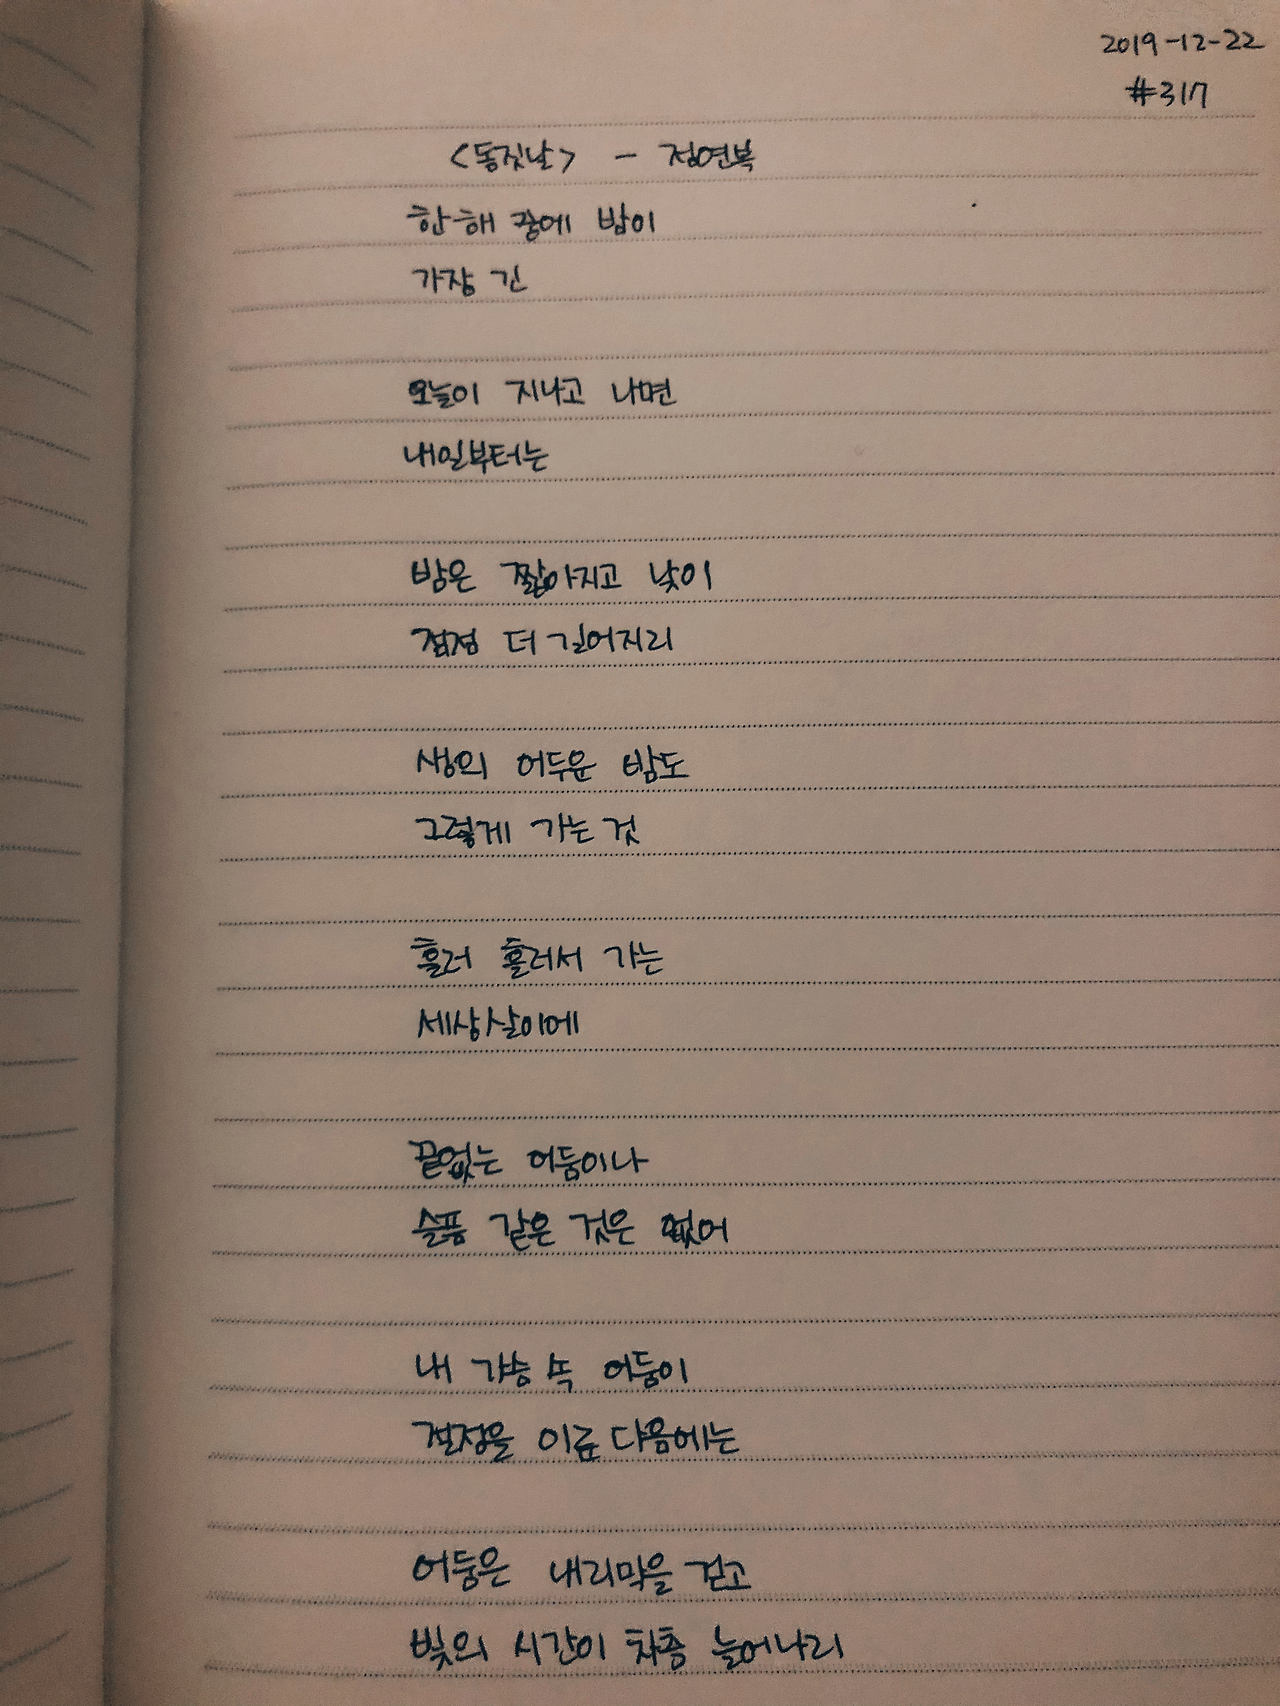 2019-12-22
#317
<동짓날> - 정연복
한 해 중에 밤이
가장 긴
오늘이 지나고 나면
내일부터는
밤은 짧아지고 낮이
점점 더 길어지리
생의 어두운 밤도
그렇게 가는 것
흘러 흘러서 가는
세상살이에
끝없는 어둠이나
슬픔 같은 것은 없어
내 가슴 속 어둠이
절정을 이룬 다음에는
어둠은 내리막을 걷고
빛의 시간이 차츰 늘어나리